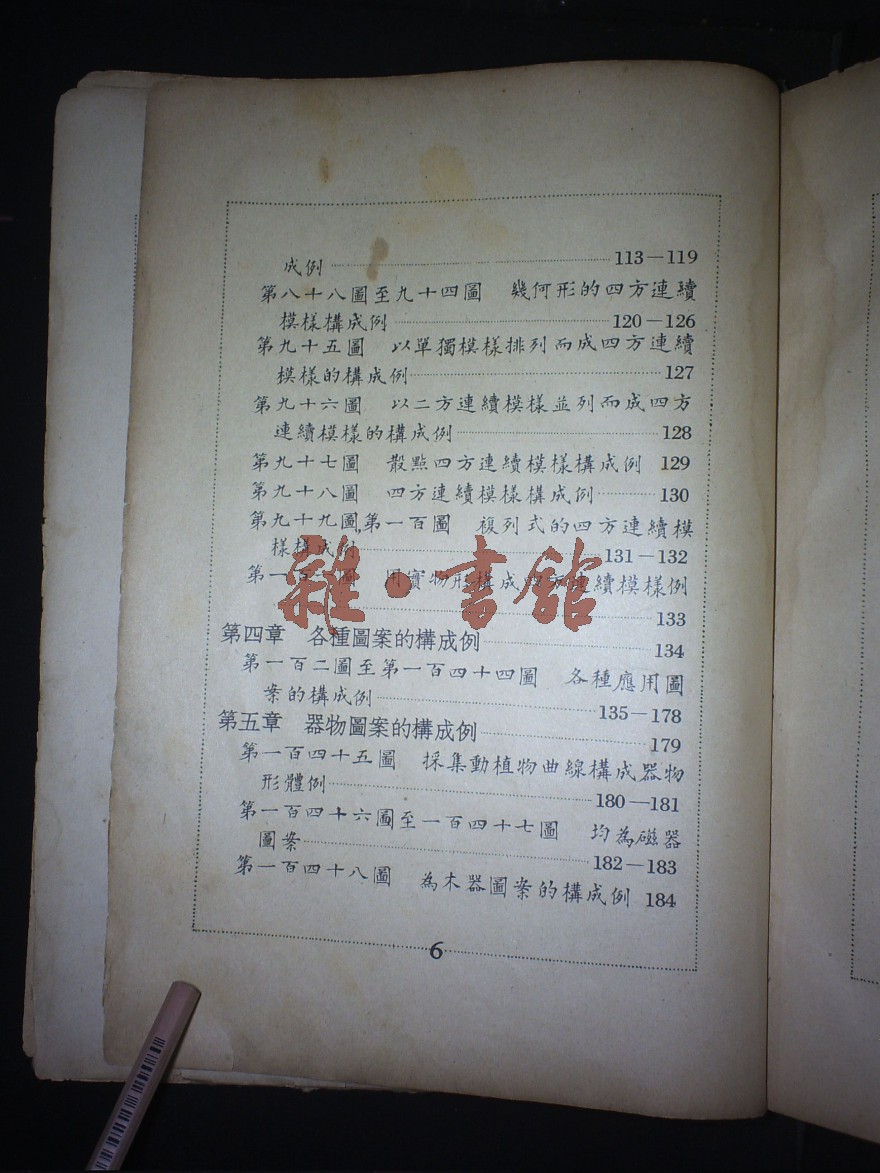 成例 113—119
第八十八圖至九十四圖　幾何形的四方連續
模樣構成例 120—126
第九十五圖　以單獨模樣排列而成四方連續
模樣的構成例 127
第九十六圖　以二方連續模樣並列而成四方
連續模樣的構成例 128
第九十七圖　散點四方連續模樣構成例 129
第九十八圖　四方連續模樣構成例 130
第九十九圖,第一百圖　複列式的四方連續模
樣構成例 131—132
第一百一圖　用實物形構成四方連續模樣例
133
雜·書館
第四章　各種圖案的構成例 134
第一百二圖至第一百四十四圖　各種應用圖
案的構成例 135—178
第五章　器物圖案的構成例 179
第一百四十五圖　採集動植物曲線構成器物
形體例 180—181
第一百四十六圖至一百四十七圖　均為磁器
圖案 182—183
第一百四十八圖　為木器圖案的構成例 184
6